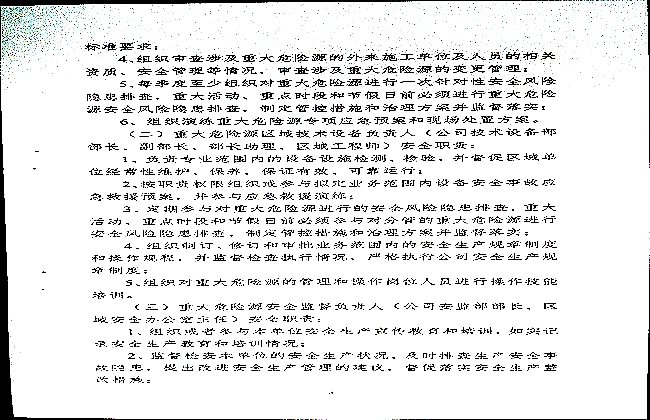 标准要求；
4、组织审查涉及重大危险源的外来施工单位及人员的相关
资质、安全管理等情况，审查涉及重大危险源的变更管理；
5、每季度至少组织对重大危险源进行一次针对性安全风险
隐患排查，重大活动、重点时段和节假日前必须进行重大危险
源安全风险隐患排查，制定管控措施和治理方案并监督落实；
6、组织演练重大危险源专项应急预案和现场处置方案。
（二）重大危险源区域技术设备负责人（公司技术设备部
部长、副部长、部长助理、区域工程师）安全职责：
1、负责专业范围内的设备设施检测、检验，并督促区域单
位经常性维护、保养，保证有效、可靠运行；
2、按职责权限组织或参与拟定业务范围内设备安全事故应
急救援预案，并参与应急救援演练；
3、定期参与对重大危险源进行的安全风险隐患排查，重大
活动、重点时段和节假日前必须参与对分管的重大危险源进行
安全风险隐患排查，制定管控措施和治理方案并监督落实；
4、组织制订、修订和审批业务范围内的安全生产规章制度
和操作规程，并监督检查执行情况，严格执行公司安全生产规
章制度；
5、组织对重大危险源的管理和操作岗位人员进行操作技能
培训。
（三）重大危险源安全监督负责人（公司安监部部长、区
域安全办公室主任）安全职责：
1、组织或者参与本单位安全生产宣传教育和培训，如实记
录安全生产教育和培训情况；
2、监督检查本单位的安全生产状况，及时排查生产安全事
故隐患，提出改进安全生产管理的建议，督促落实安全生产整
改措施；